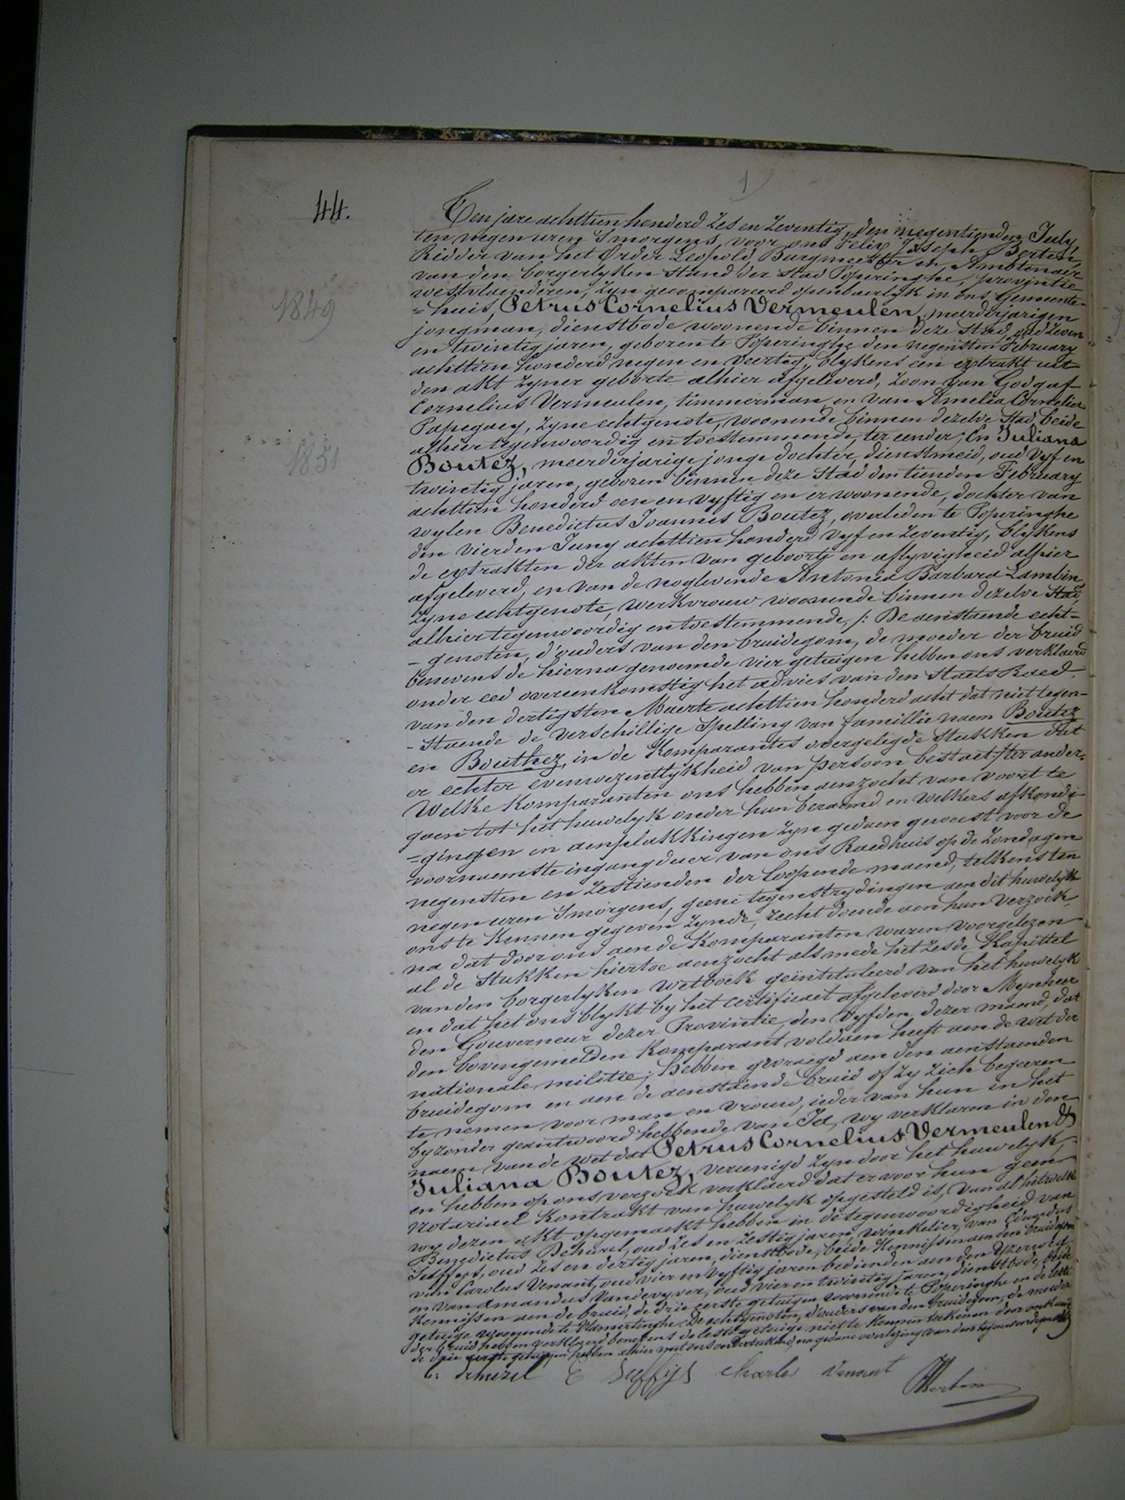 1
44.
Ten jare achttien honderd zes en zeventig, den negentienden July
ten negen uren 's morgens, voor ons Felix Joseph Berten,
Ridder van het Order Leopold, Burgmeester en Ambtenaar
van den borgerlyken stand der stad Poperinghe, provintie
westvlaenderen, zyn gecompareerd openbaerlyk in ons Gemeente-
=huis, Petrus Cornelius Vermeulen, meerderjarigen
1849
jongman, dienstbode woonende binnen deze stad, oud zeven
en twintig jaren, geboren te Poperinghe den negensten February
achttien honderd negen en veertig, blykens een extrakt uit
den akt zyner geborte alhier afgeleverd, zoon van
Cornelius Vermeulen, timmerman, en van Amelia Cornelia
Papegaey, zyne echtgenote, woonende binnen dezelve stad, beide
alhier tegenwoordig en toestemmende, ter eender; En Juliana
1851
Boutez, meerderjarige jonge dochter, dienstmeid, oud vyf en
twintig jaren, geboren binnen deze stad den tienden February
achttien honderd een en vyftig en er woonende, dochter van
wylen Benedictus Joannes Boutez, overleden te Poperinghe
den vierden Juny achttien honderd vyf en zeventig, blykens
de extrakten der akten van geboorte en aflyvigheid alhier
afgeleverd, en van de noglevende Antonia Barbara Lambin,
zyne echtgenote, werkvrouw woonende binnen dezelve stad,
alhier tegenwoordig en toestemmende, /: De aenstaende echt-
-genoten, d'ouders van den bruidegom, de moeder der bruid
benevens de hierna genoemde vier getuigen hebben ons verklaerd
onder eed overeenkomstig het advies van den Staets Raed
van den dertigsten Maerte achttien honderd acht dat niet tegen-
-staende de verschillige spelling van famillie naem Boutez
en Bouthez, in de Komparantes overgelegde stukken dat
er echter evenwezentlykheid van persoon bestaet, ter ander;
Welke Komparanten ons hebben aenzocht van voort te
gaen tot het huwelyk onder hun beraemd en welkers afkondi-
=gingen en aenplakkingen zyn gedaen geweest voor de
voornaemste ingangdeur van ons Raedhuis op de zondagen
negensten en zestienden der loopende maend, telkens ten
negen uren 's morgens, geene tegenstrydingen aen dit huwelyk
ons te kennen gegeven zynde, recht doende aen hun verzoek,
na dat door ons aen de Komparanten waren voorgelezen
al de stukken hiertoe aenzocht alsmede het zesde Kapittel
van den borgerlyken wetboek geintituleerd van het huwelyk
en dat het ons blykt by het certificaet afgeleverd door Mynheer
den Gouverneur dezer Provintie, den vyfden dezer maend, dat
den bovengemelden Komparant voldaen heeft aen de wet der
nationale militie; Hebben gevraegd aen den aenstaenden
bruidegom en aen de aenstaende bruid of zy zich begeren
te nemen voor man en vrouw, ieder van hun in het
byzonder geantwoord hebbende van Ja, wy verklaren in den
naem van de wet dat Petrus Cornelius Vermeulen &
Juliana Boutez, vereenigd zyn door het huwelyk,
en hebben op ons verzoek verklaerd dat er voor hun geen
notariael Kontrakt van huwelyk opgesteld is, van al het welk
wy dezen akt opgemaekt hebben in de tegenwoordigheid van
Benedictus Deherel, oud zes en zestig jaren, winkelier, van Eduardus
oud zes en dertig jaren, dienstbode, beide Kennissen aen den bruidegom
van Carolus Venant, oud vier en vyftig jaren bediende aen den Yzerweg
en van Amandus Vandevyver, oud vier en twintig jaren, dienstbode, beide
Kennissen aen de bruid, de drie eerste getuigen woonende te Poperinghe en de leste
getuige woonende te Vlamertinghe. De echtgenoten, d'ouders van den bruidegom, de moeder
der bruid hebben verklaerd benevens de leste getuige niet te konnen teekenen door onkunde
de drie eerste getuigen hebben alhier met ons onderteekend, na gedane voorlezing van
Charles Venant